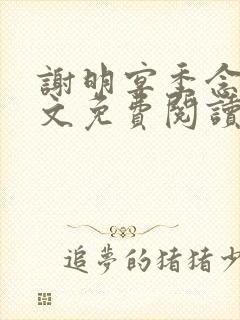 謝明宴季念
文免費閱讀
追夢的猪猪少